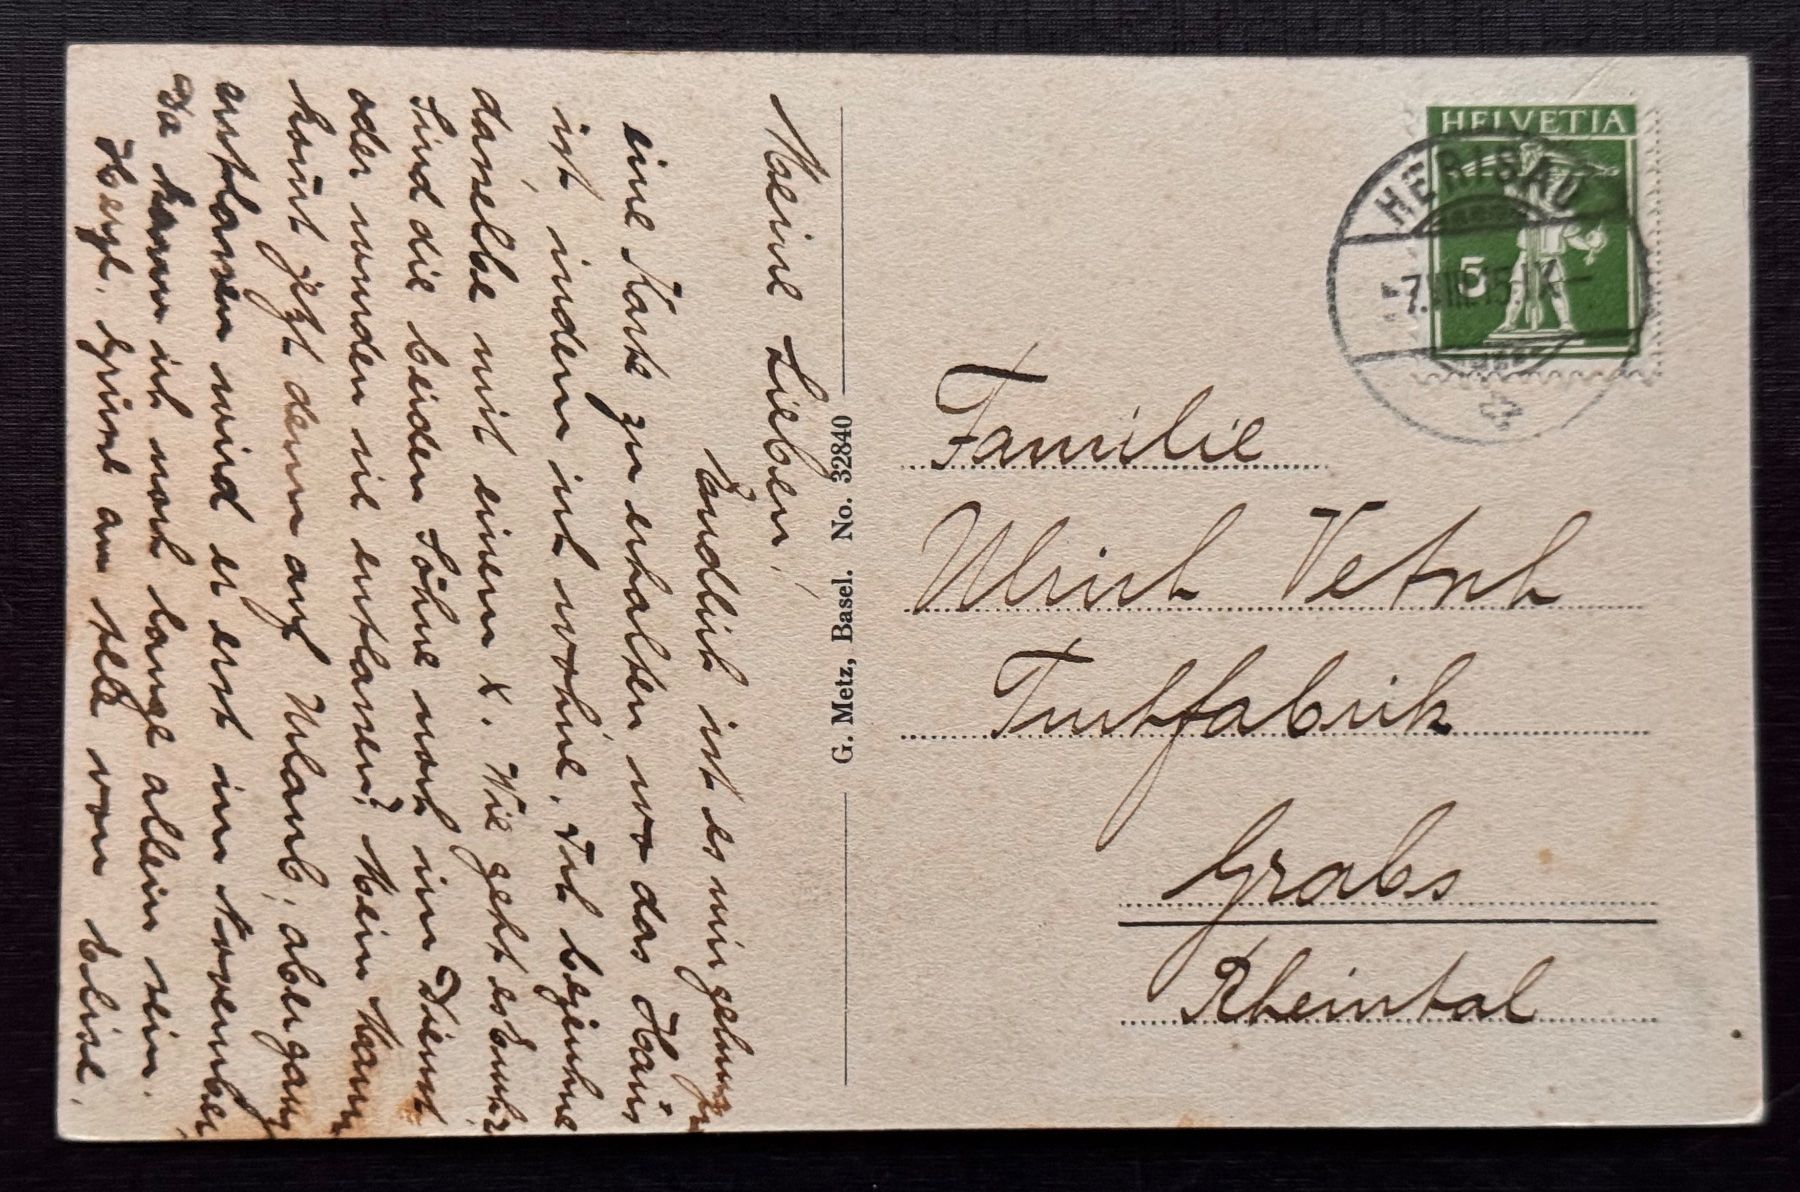 Meine Lieben!
Endlich ist es mir gelungen
eine Karte zu erhalten wo das Haus
ist, indem ich wohne. Ich bezeichne
dasselbe mit einem X. Wie geht es Euch?
Sind die beiden Söhne noch im Dienst
oder wurden sie entlassen? Mein Mann
kommt jezt denn auf Urlaub, aber ganz
entlassen wird er erst im November,
Da kann ich noch lange allein sein.
Herzl. Grüsse an alle von Elise.
G. Metz, Basel. No. 32840
HELVETIA
5
HERISAU
-7.VIII.15. IX-
Familie
Ulrich Vetsch
Tuchfabrik
Grabs
Rheintal